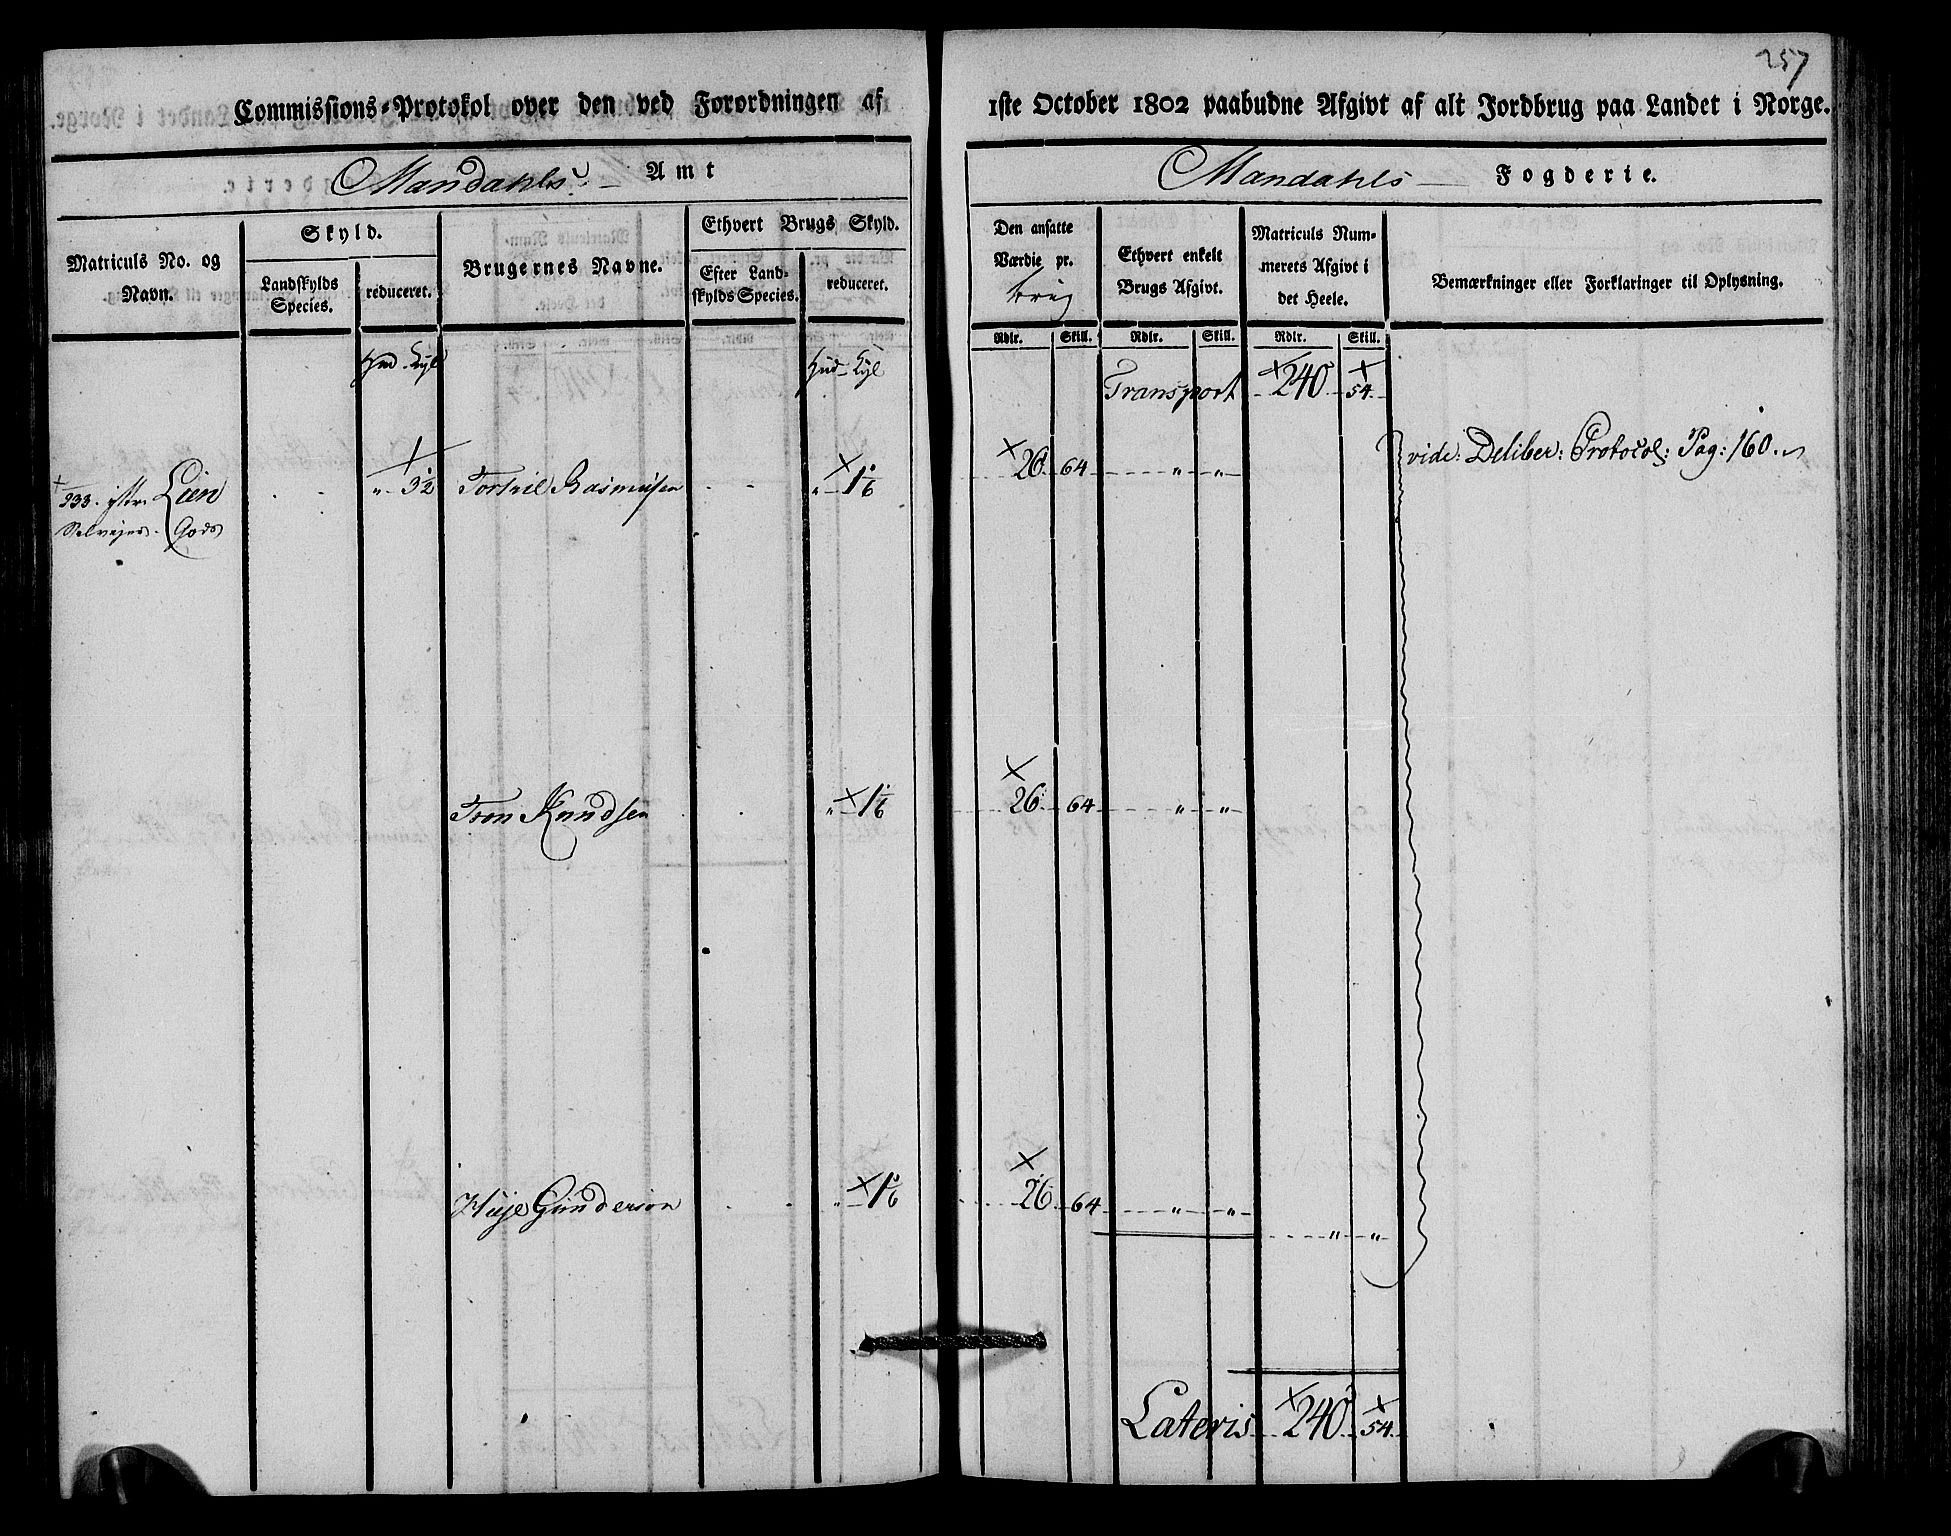 257
Commissions-Protokol over den ved Forordningen af 1ste October 1802 paabudne Afgivt af alt Jordbrug paa Landet i Norge.
Mandahls Amt
Mandahls Fogderie.
Matriculs No. og Navn.
Skyld.
Landskylds Species.
reduceret.
Brugernes Navne.
Ethvert Brugs Skyld.
Efter Landskylds Species.
reduceret.
Den ansatte Værdie pr.
Ethvert enkelt Brugs Afgivt.
Matriculs Nummerets Afgivt i det Heele.
Bemærkninger eller Forklaringer til Oplysning.
Rdlr. Skill. Rdlr. Skill. Rdlr. Skill.
Hud Kyl
Hud Kyl
Transport 240 54
233. Lien " 3½ Rasmusen " 1 1/6 26 64 " " vide: Deliber: Protocol: Pag: 160.
Selvejer Gods
Tron Knudsen " 1 1/6 26 64 " "
Gunderson " 1 1/6 26 64 " "
" "
Lateris 240 54